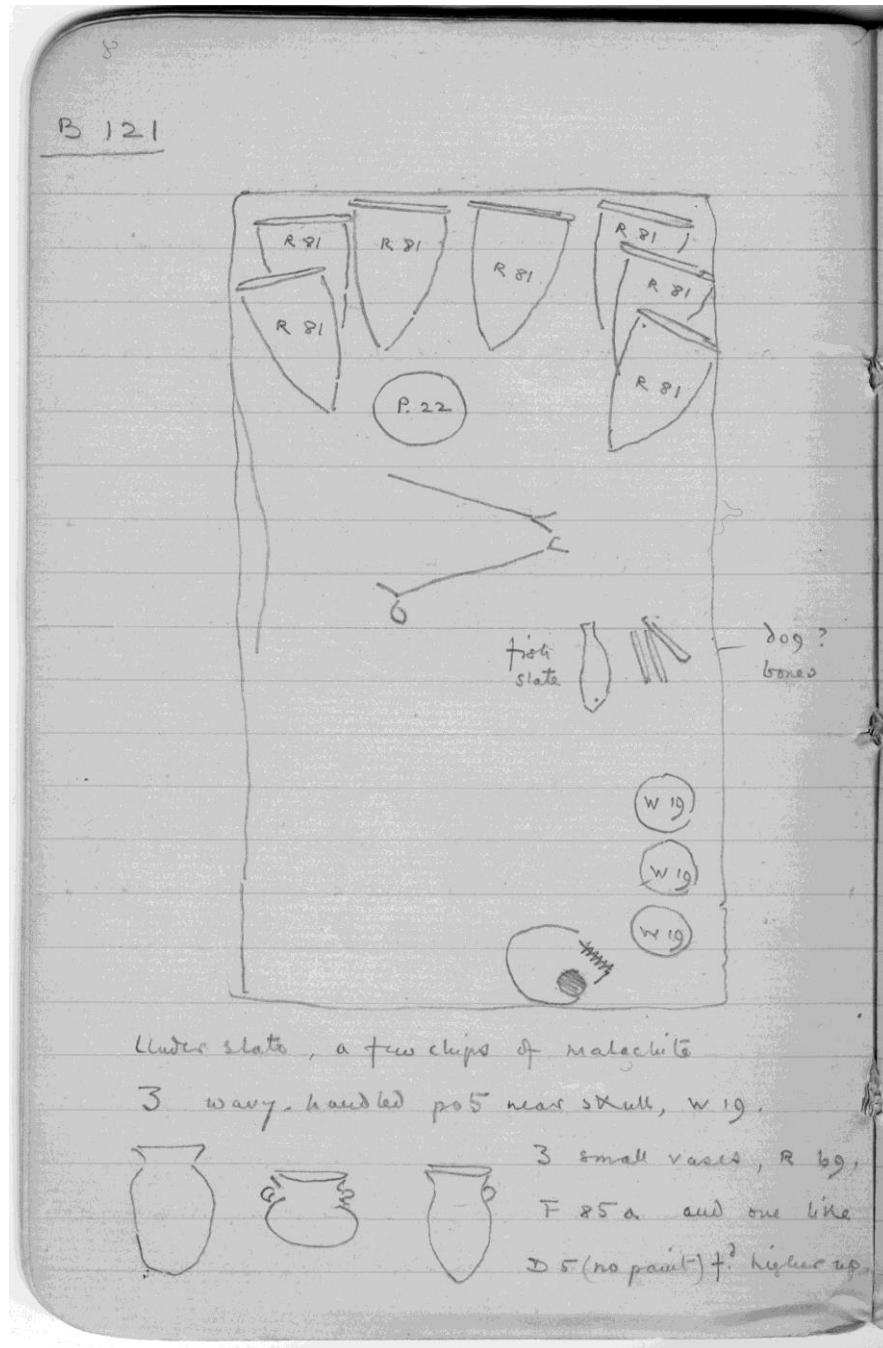 8
B 121
R 81
R 81
R 81
R 81
R 81
R 81
R 81
R 81
P. 22
fish
slate
dog?
bones
W 19
W 19
W 19
Under slate, a few chips of malachite
3 wavy-handled pots near skull, W 19.
3 small vases, R 69,
F 85 a and one like
D 5 (no paint) fd higher up.